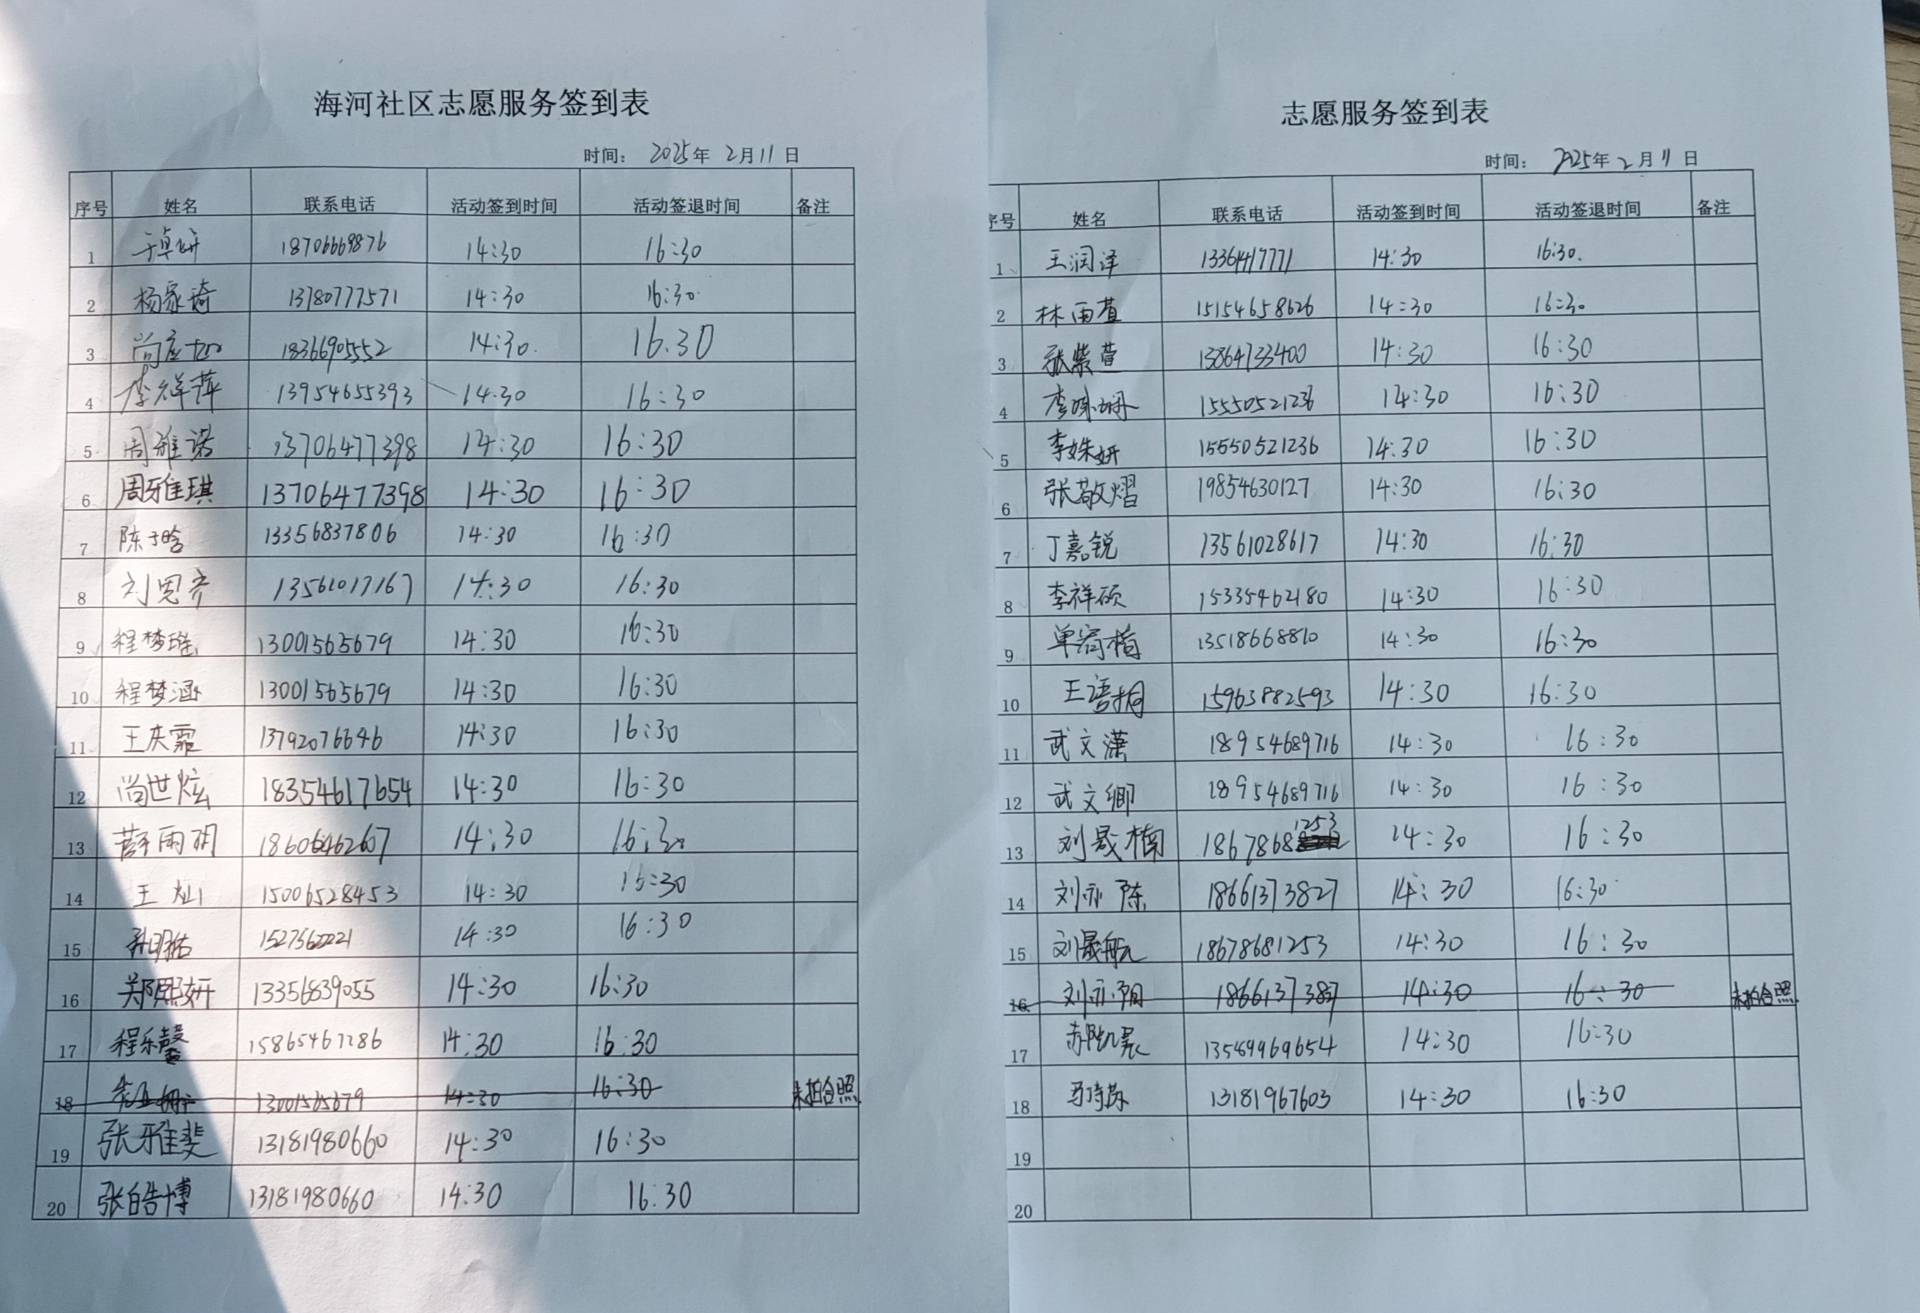 海河社区志愿服务签到表
时间： 2025年 2月11日
序号 姓名 联系电话 活动签到时间 活动签退时间 备注
1 于卓妍 18706669876 14:30 16:30
2 杨家琦 13780777571 14:30 16:30
3 尚 18366905552 14:30 16.30
4 李祥萍 13954655393 14:30 16:30
5 周雅诺 13706477398 14:30 16:30
6 周雅琪 13706477398 14:30 16:30
7 陈于晗 13356837806 14:30 16:30
8 刘恩齐 13561017167 14:30 16:30
9 程梦瑶 13001565679 14:30 16:30
10 程梦涵 13001565679 14:30 16:30
11 王庆霖 13792076646 14:30 16:30
12 尚世炫 18354617654 14:30 16:30
13 薛雨玥 18606462607 14:30 16:30
14 王灿 15006528453 14:30 16:30
15 孙明祐 14:30 16:30
16 郑熙妍 13356839055 14:30 16:30
17 程乐馨 15865467286 14:30 16:30
18 13001565679 14:30 16:30 未拍合照
19 张雅斐 13181980660 14:30 16:30
20 张皓博 13181980660 14:30 16.30
志愿服务签到表
时间： 2025年 2月11日
序号 姓名 联系电话 活动签到时间 活动签退时间 备注
1 王润泽 13361417771 14:30 16:30.
2 林雨萱 15154658626 14:30 16:30
3 张紫萱 13864733400 14:30 16:30
4 李姝珊 15550521236 14:30 16:30
5 李姝妍 15550521236 14:30 16:30
6 张敬熠 19854630127 14:30 16:30
7 丁嘉锐 13561028617 14:30 16:30
8 李祥硕 15335462180 14:30 16:30
9 单 楠 13518668810 14:30 16:30
10 王语桐 15963882593 14:30 16:30
11 武文潇 18954689716 14:30 16:30
12 武文卿 18954689716 14:30 16:30
13 刘晟楠 18678681253 14:30 16:30
14 刘亦陈 18661373827 14:30 16:30
15 刘晟航 18678681253 14:30 16:30
16 刘亦阳 14:30 16:30 未拍合照
17 苏 13589969654 14:30 16:30
18 马诗 13181967603 14:30 16:30
19
20